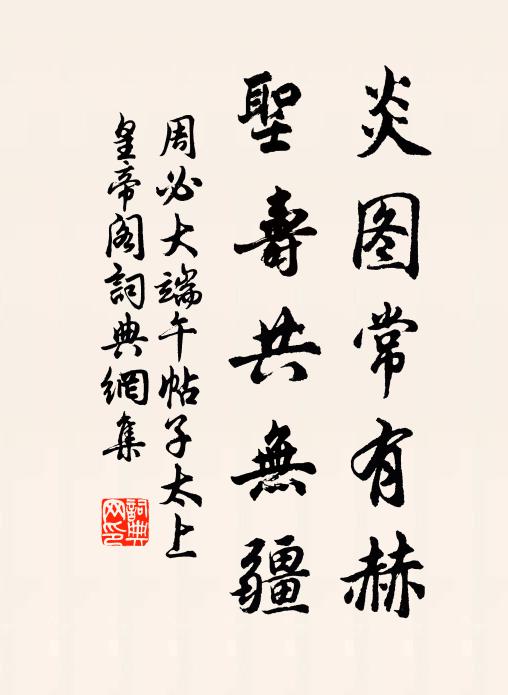 炎图常有赫
聖壽共無疆
周必大端午帖子太上
皇帝阁詞典網集
詞典网印